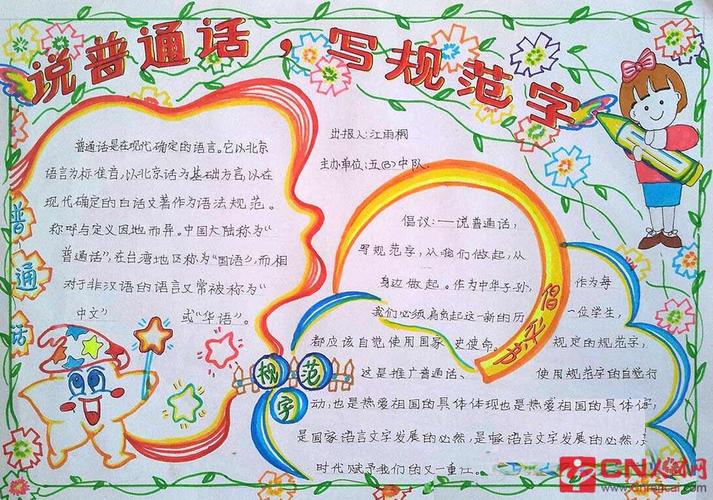 说普通话，写规范字
普通话是在现代确定的语言。它以北京
语言为标准音,以北京话为基础方言,以在
现代确定的白话文著作为语法规范。
称呼与定义因地而异。中国大陆称为“
普通话”,在台湾地区称为“国语”,而相
对于非汉语的语言又常被称为“
中文” 或“华语”。
普通话
规范字
出报人:江雨桐
主办单位:五(3)中队
倡议:——说普通话，
写规范字,从我们做起,从
身边做起。作为中华子孙, 作为每
我们必须肩负起这一新的历 一位学生,
都应该自觉使用国家 史使命。 规定的规范字,
这是推广普通话、 使用规范字的自觉行
动,也是热爱祖国的具体体现也是热爱祖国的具体体
是国家语言文字发展的必然,是国家语言文字发展的必然,
时代赋予我们的又一重
倡议书
CN人才网
www.cnrencai.com